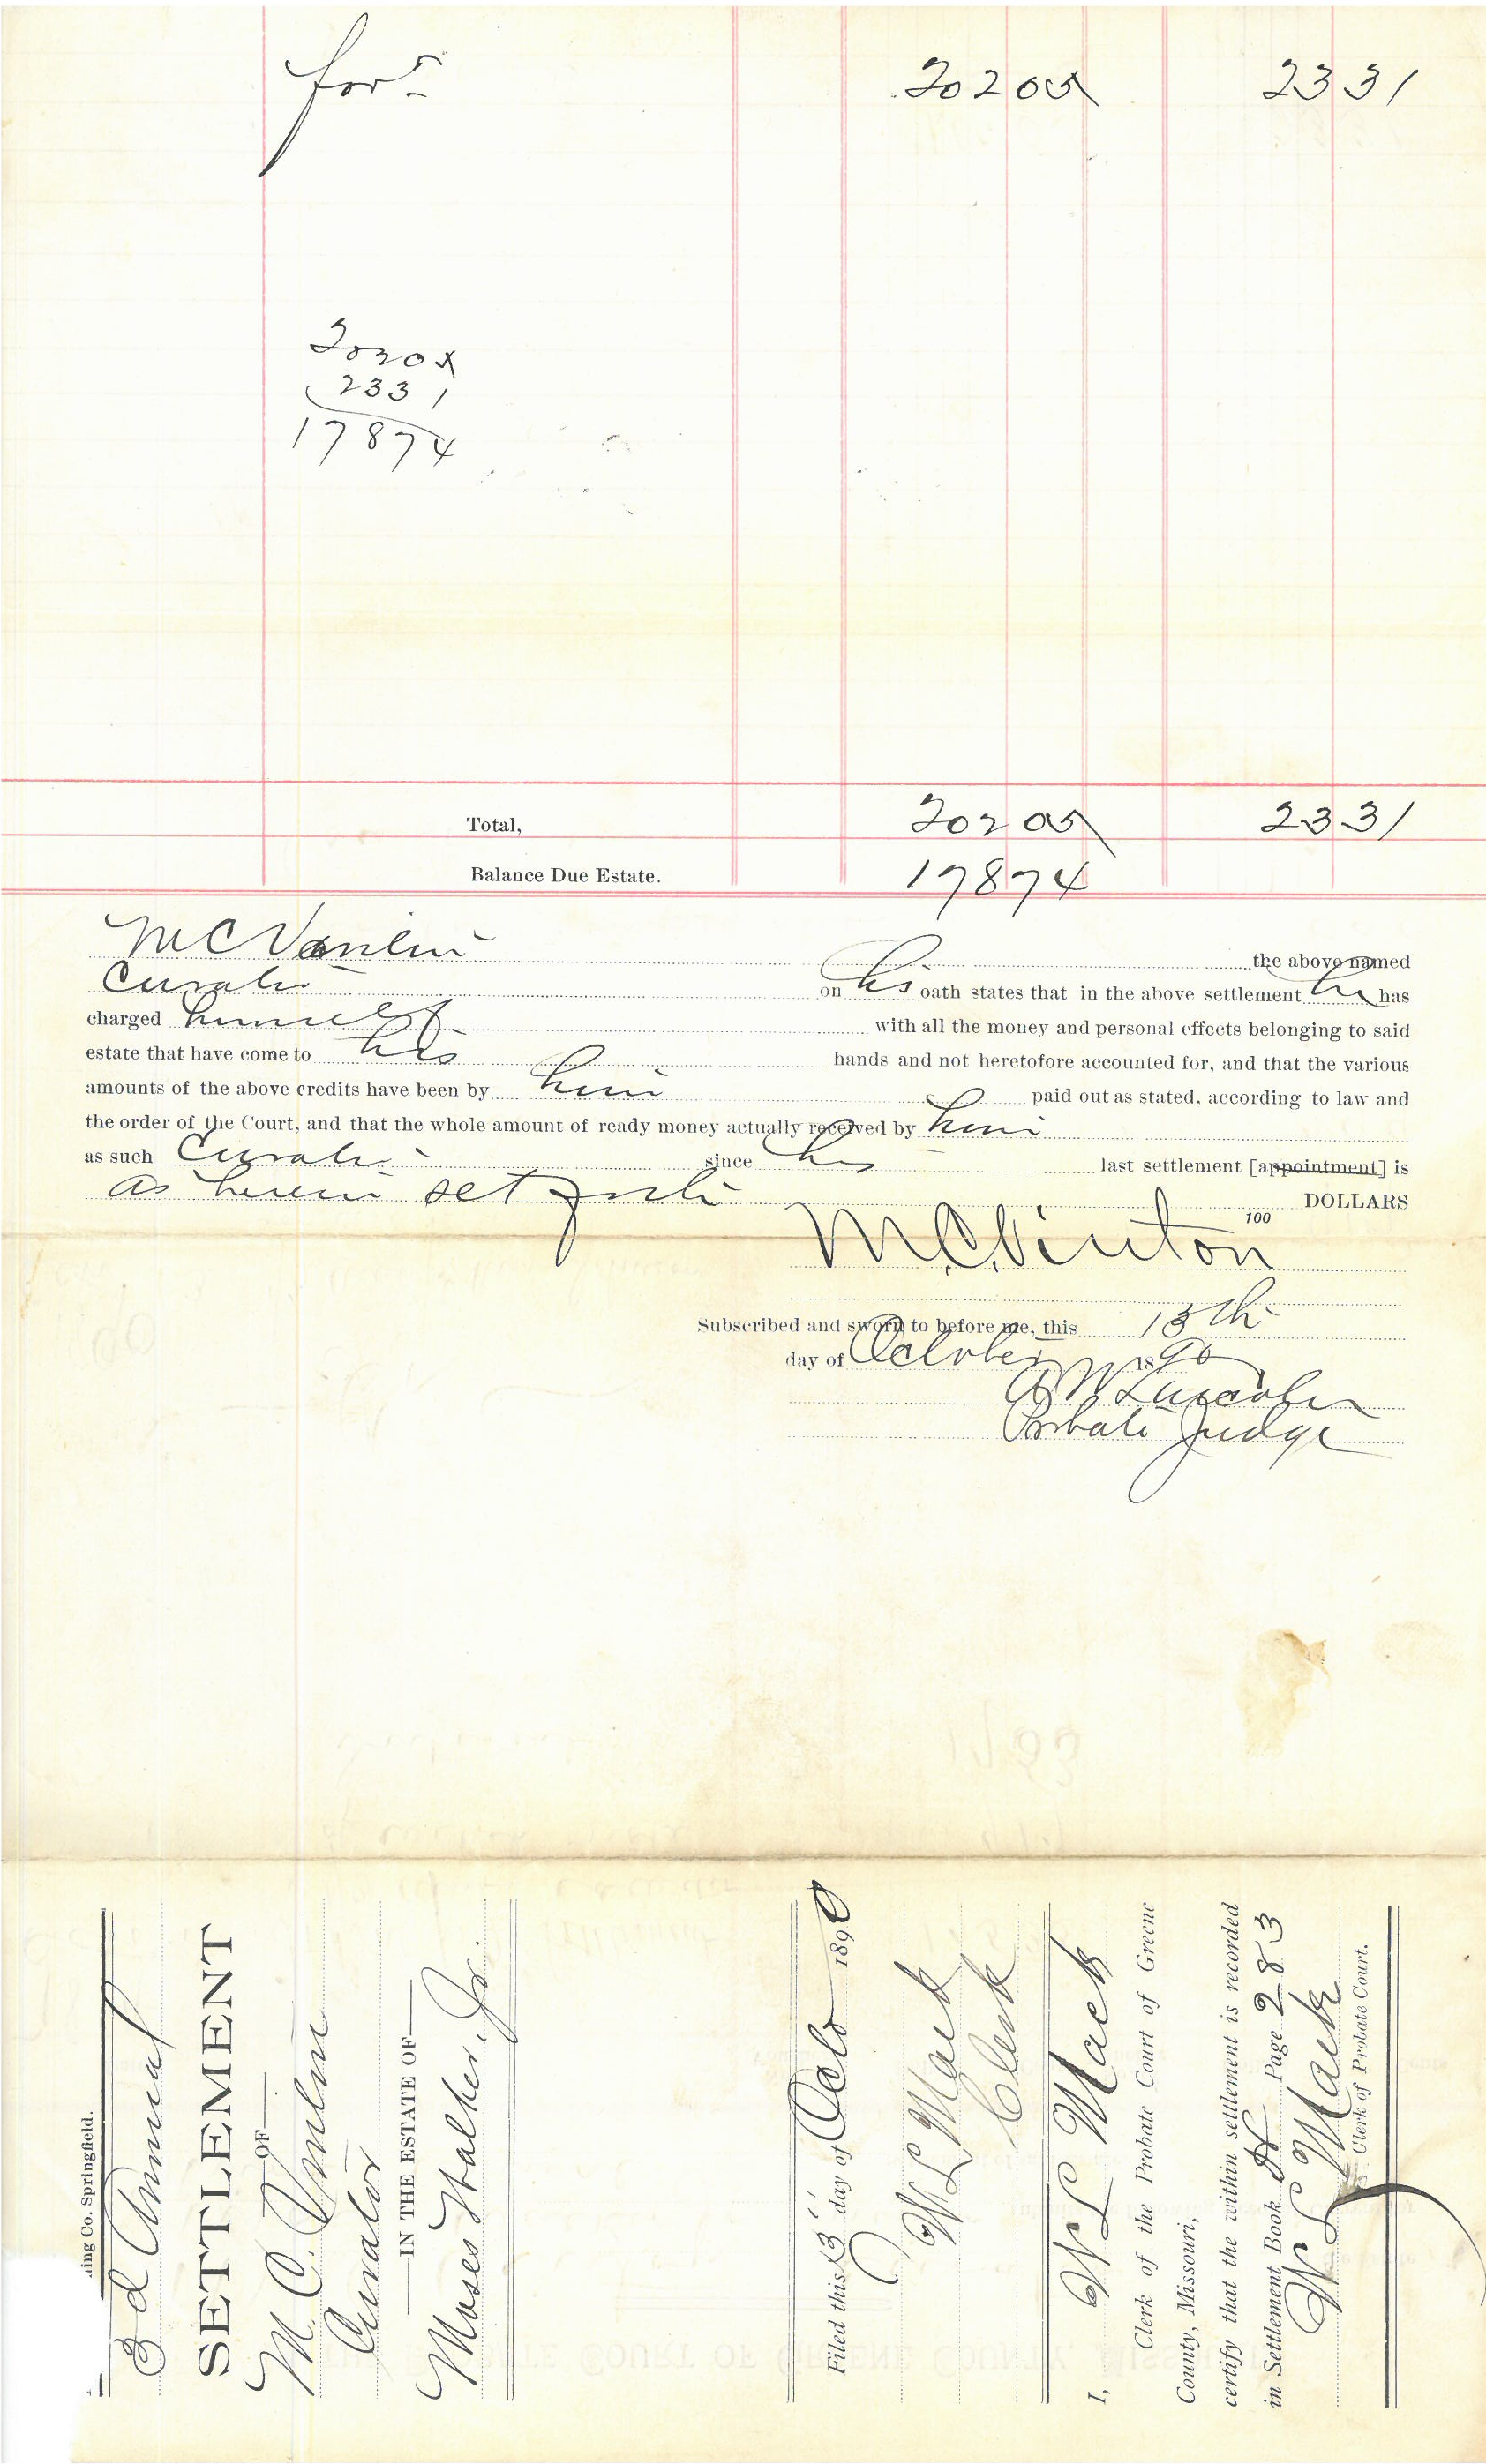 for^d 20205 2331
20205
2331
17874
Total, 20205 2331
Balance Due Estate. 17874
M C Vinton the above named
Curator on his oath states that in the above settlement he has
charged himself with all the money and personal effects belonging to said
estate that have come to his hands and not heretofore accounted for, and that the various
amounts of the above credits have been by him paid out as stated, according to law and
the order of the Court, and that the whole amount of ready money actually received by him
as such Curator since his last settlement [appointment] is
as herein set forth DOLLARS
100
M.C. Vinton
Subscribed and sworn to before me, this 13th
day of October 1890
Lincoln
Probate Judge
ing Co. Springfield.
3d Annual
SETTLEMENT
OF
M. C. Vinton
Curator
IN THE ESTATE OF
Moses Walker, Jr.
Filed this 13 day of Oct 1890
W L Mack
Clerk
I, W L Mack
Clerk of the Probate Court of Greene
County, Missouri,
certify that the within settlement is recorded
in Settlement Book Page 283
W L Mack
Clerk of Probate Court.